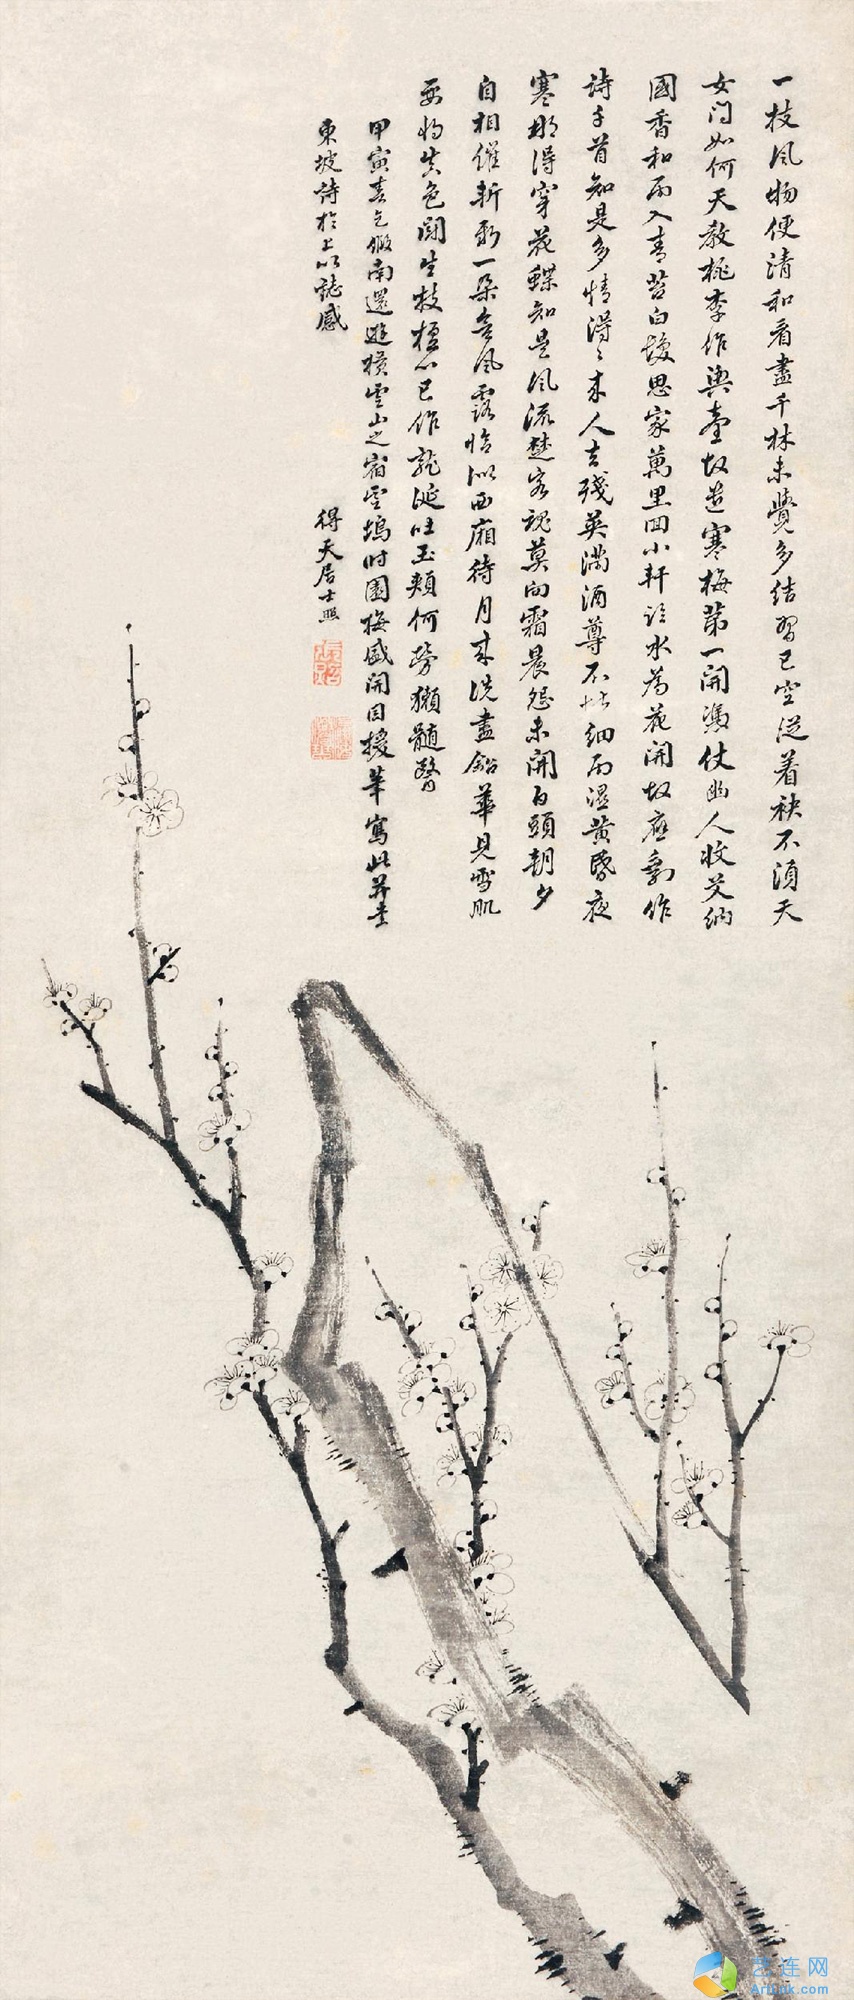 一枝風物便清和看盡千林未覺多結習已空從着袂不須天
女問如何天教桃李作輿臺故遣寒梅第一開憑仗幽人收艾納
國香和雨入青苔白髮思家萬里回小軒臨水為花開故應剩作
詩千首知是多情得〻來人去殘英滿酒尊不堪細雨濕黃昏夜
寒那得穿花蝶知是風流楚客魂莫向霜晨怨未開白頭朝夕
自相催斬新一朵含風露恰似西廂待月來洗盡鉛華見雪肌
要將真色鬪生枝檀心已作龍涎吐玉頰何勞獺髓醫
甲寅春乞假南還遊橫雲山之宿雲塢時園梅盛開因援筆寫此并書
東坡詩於上以誌感
得天居士照
艺连网